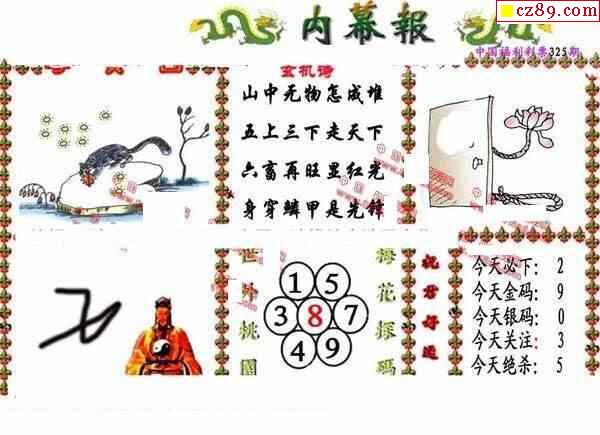 cz89.com
内幕報
中国福利彩票325期
玄机诗
山中无物怎成堆
五上三下走天下
六畜再旺显红光
身穿鳞甲是先锋
世外桃園
1 5
3 8 7
4 9
梅花探码
祝君好运
今天必下: 2
今天金码: 9
今天银码: 0
今天关注: 3
今天绝杀: 5